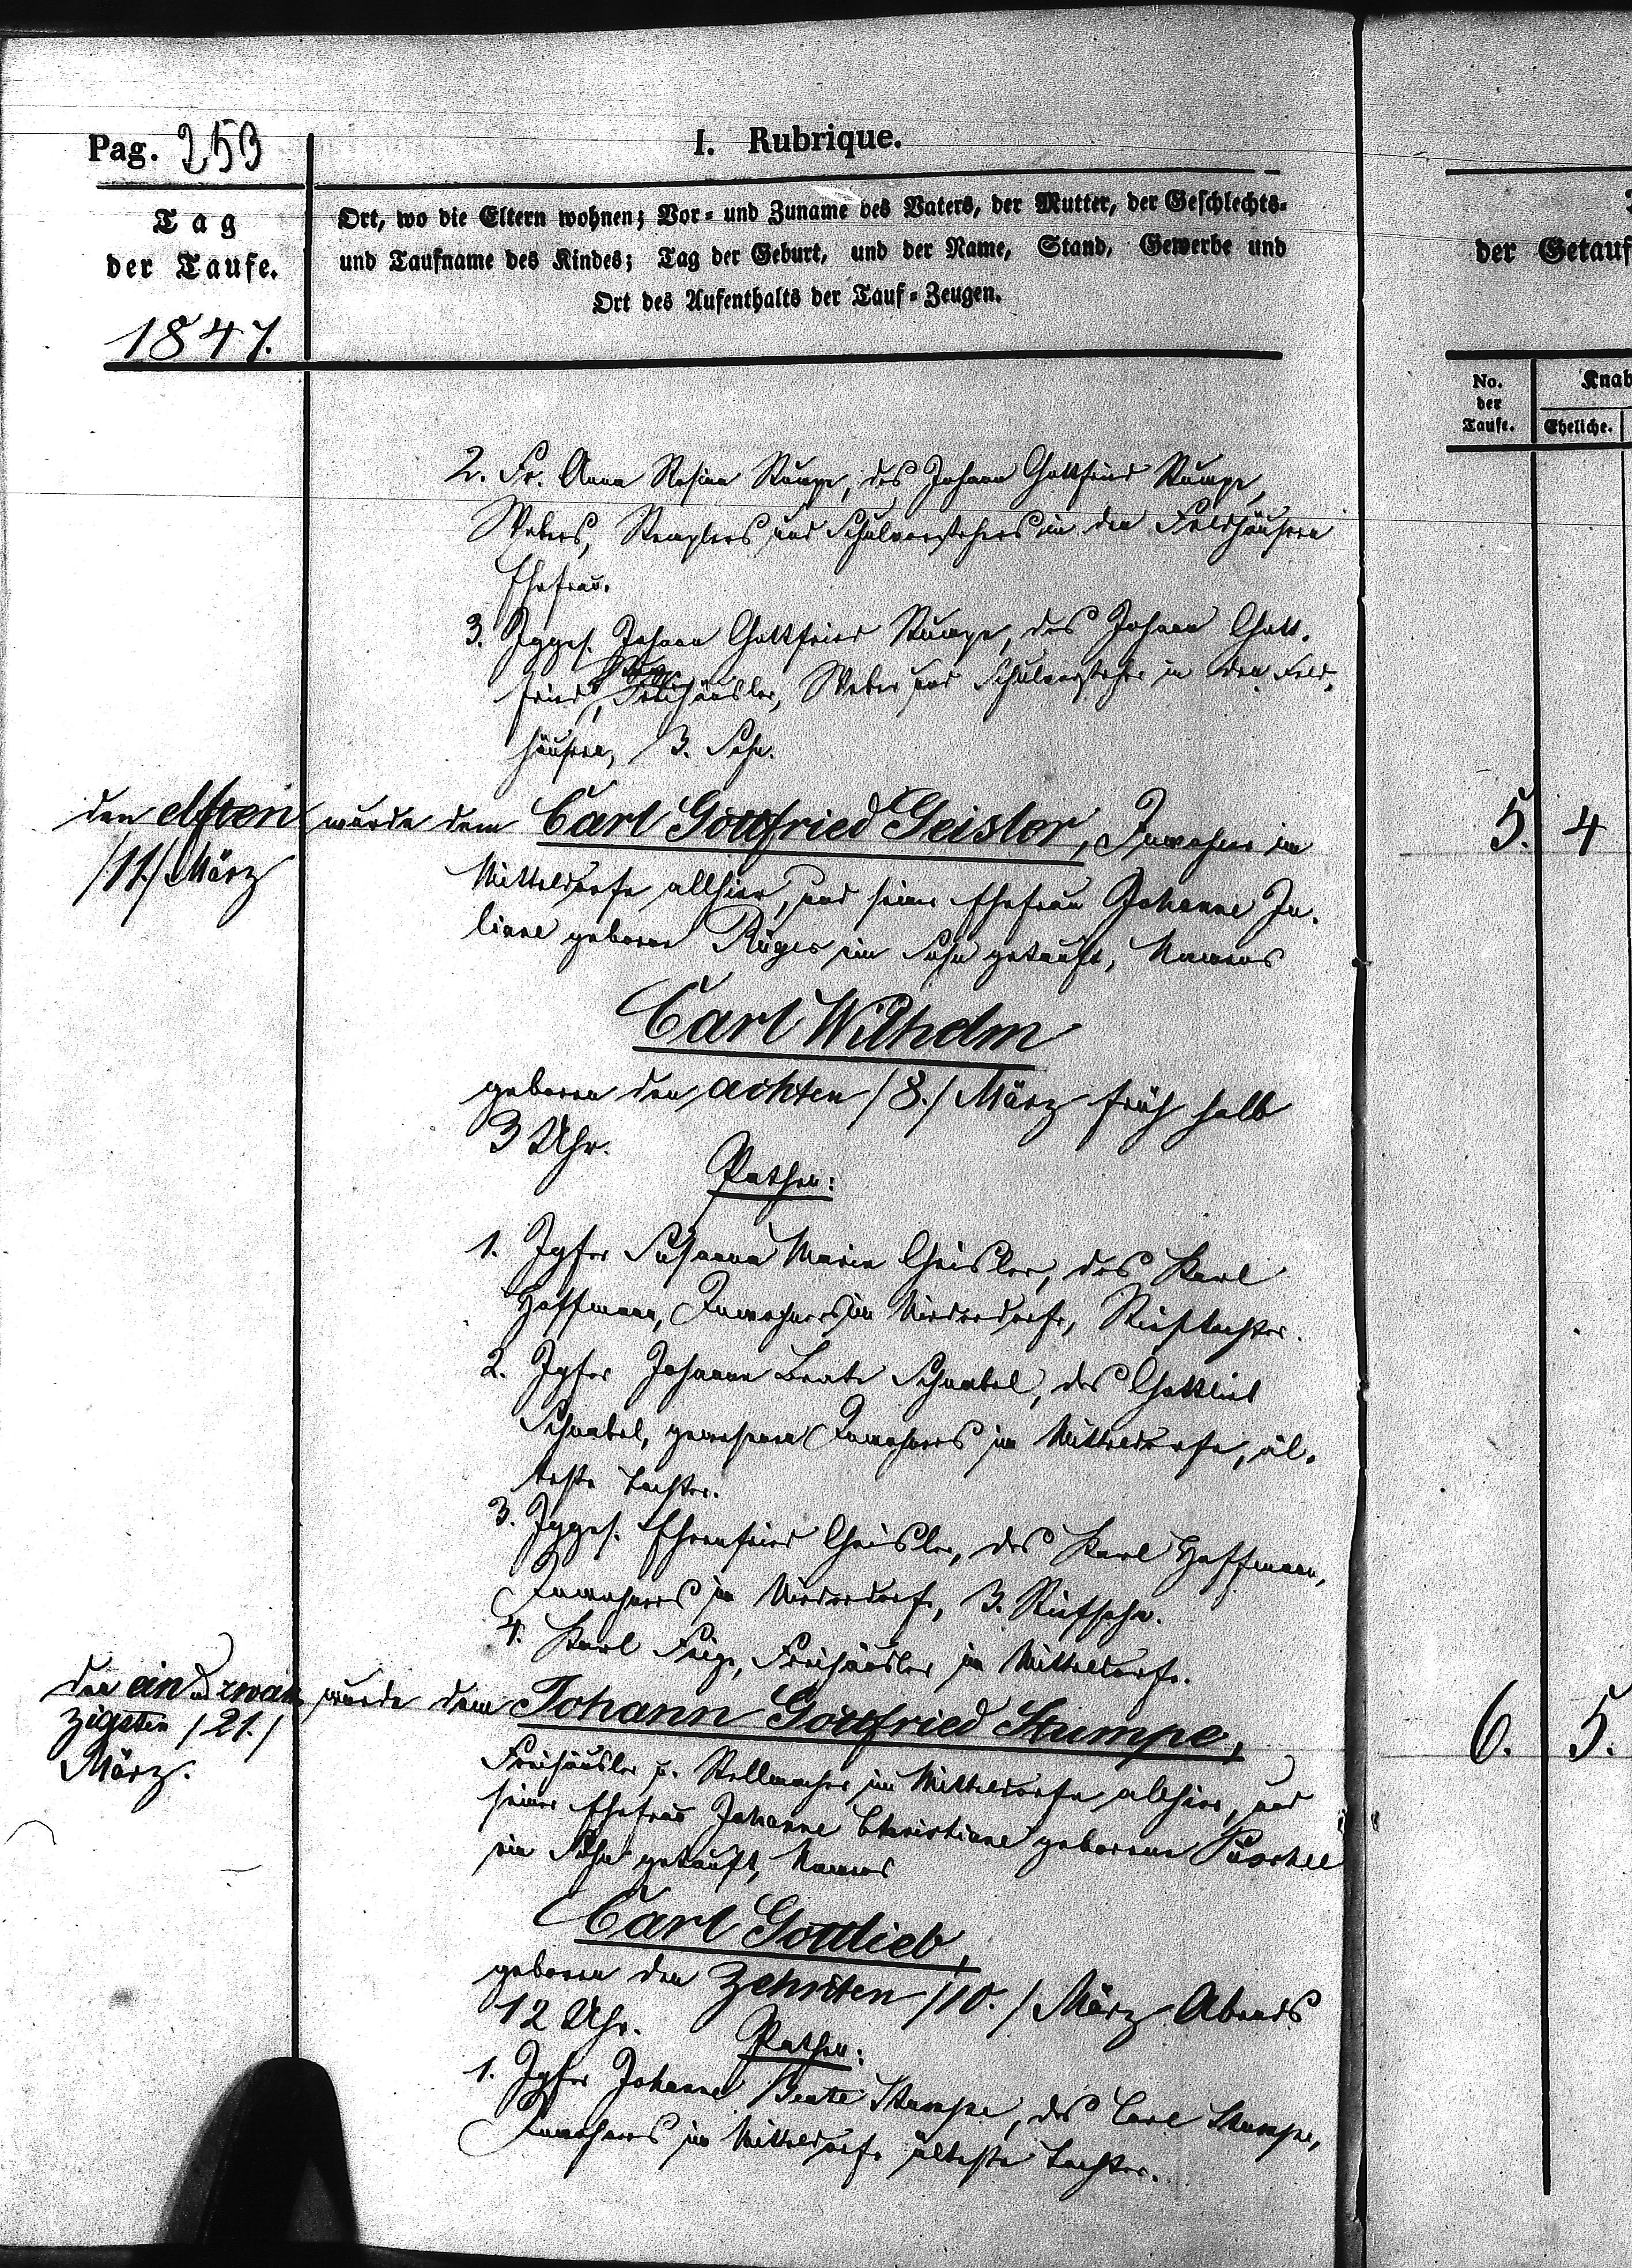 Pag. 253
I. Rubrique.
Tag
der Taufe.
1847.
Ort, wo die Eltern wohnen; Vor- und Zuname des Vaters, der Mutter, der Geschlechts-
und Taufname des Kindes; Tag der Geburt, und der Name, Stand, Gewerbe und
Ort des Aufenthalts der Tauf-Zeugen.
der Getauf
No.
der
Taufe.
Knab
Eheliche.
2. Fr. Anna Rosina Stumpe, des Johann Gottfried Stumpe,
Webers, und Schulvorstehers in den Feldhäusern
Ehefrau.
3. Jgges. Johann Gottfried Stumpe, des Johann Gott-
fried Stumpe, Freihäusler, Weber und Schulvorsteher in den Feld-
häusern, 3. Sohn.
den elften
/11./ März
wurde dem Carl Gottfried Geisler, Inwohner im
Mitteldorfe allhier, und seiner Ehefrau Johanne Ju-
liane geborne Rüger ein Sohn getauft, Namens
Carl Wilhelm
geboren den achten /8./ März früh halb
3 Uhr.
Pathen:
1. Jgfr Susanna Maria Geisler, des Karl
Hoffmann, Inwohners im Niederdorfe, Stieftochter.
2. Jgfr Johanne Beate Schnabel, des Gottlieb
Schnabel, gewesenen Inwohners im Mitteldorfe, äl-
teste Tochter.
3. Jgges. Ehrenfried Geisler, des Karl Hoffmann,
Inwohners im Niederdorfe, 3. Stiefsohn.
4. Karl Feige, Freihäusler im Mitteldorfe.
5. 4
den ein u. zwan
zigsten /21./
März.
wurde dem Johann Gottfried Stumpe,
Freihäusler u. Stellmacher im Mitteldorfe allhier, und
seiner Ehefrau Johanne Christiane geborene Püschel
ein Sohn getauft, Namens
Carl Gottlieb,
geboren den zehnten /10./ März Abends
12 Uhr.
Pathen:
1. Jgfr Johanne Beate Stumpe, des Carl Stumpe,
Inwohners im Mitteldorfe älteste Tochter.
6. 5.